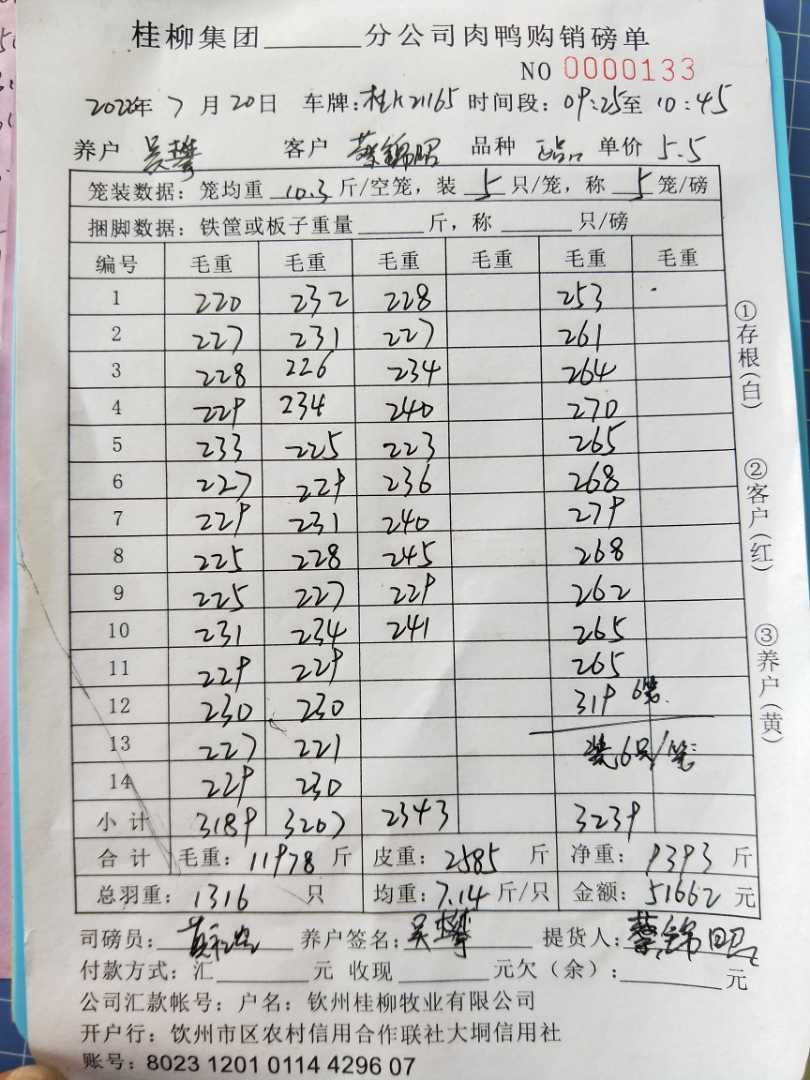 桂柳集团______分公司肉鸭购销磅单
NO 0000133
2022年7月20日 车牌:桂K21165 时间段:09:25至10:45
养户 吴攀 客户 蔡锦昭 品种 单价 5.5
笼装数据:笼均重 10.3 斤/空笼,装 5 只/笼,称 5 笼/磅
捆脚数据:铁筐或板子重量______斤,称______只/磅
编号 毛重 毛重 毛重 毛重 毛重 毛重
1 220 232 228 253
2 227 231 227 261
3 228 226 234 264
4 229 234 240 270
5 233 225 223 265
6 227 229 236 268
7 229 231 240 279
8 225 228 245 268
9 225 227 229 262
10 231 234 241 265
11 229 229 265
12 230 230 319 6笼
13 227 221 装6只/笼
14 229 230
小计 3189 3207 2343 3239
合计 毛重:11978斤 皮重:2585斤 净重:9393斤
总羽重:1316只 均重:7.14斤/只 金额:51662元
司磅员: 养户签名:吴攀 提货人:蔡锦昭
付款方式:汇______元 收现______元欠(余):______元
公司汇款帐号:户名:钦州桂柳牧业有限公司
开户行:钦州市区农村信用合作联社大垌信用社
账号:8023 1201 0114 4296 07
①存根(白)
②客户(红)
③养户(黄)